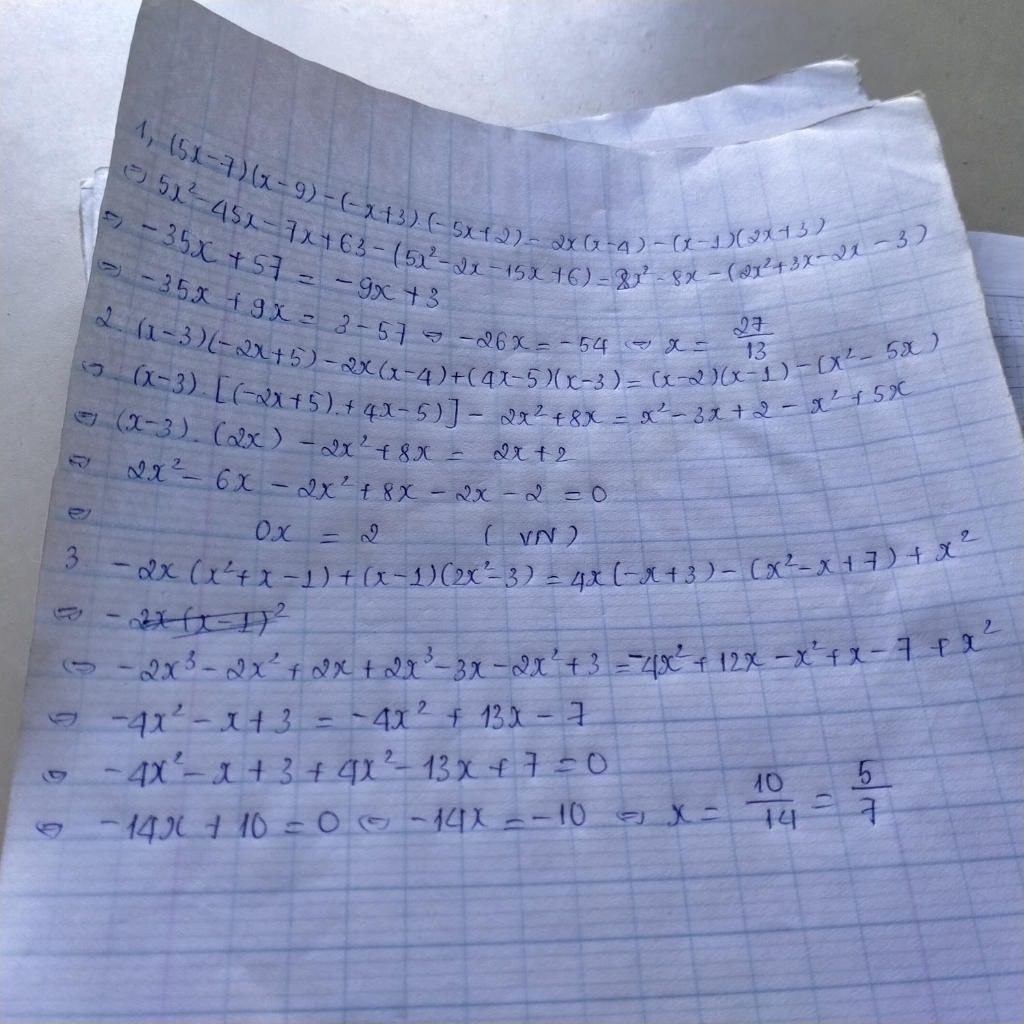 1, (5x-7)(x-9)-(-x+3).(-5x+2)=2x(x-4)-(x-1)(2x+3)
⇔ 5x²-45x-7x+63-(5x²-2x-15x+6)=2x²-8x-(2x²+3x-2x-3)
⇔ -35x+57=-9x+3
⇔ -35x+9x=3-57 ⇔ -26x=-54 ⇔ x=27/13
2. (x-3)(-2x+5)-2x(x-4)+(4x-5)(x-3)=(x-2)(x-1)-(x²-5x)
⇔ (x-3).[(-2x+5).+4x-5)]-2x²+8x=x²-3x+2-x²+5x
⇔ (x-3).(2x)-2x²+8x=2x+2
⇔ 2x²-6x-2x²+8x-2x-2=0
⇔ 0x=2 (VN)
3 -2x(x²+x-1)+(x-1)(2x²-3)=4x(-x+3)-(x²-x+7)+x²
⇔ -2x(x-1)²
⇔ -2x³-2x²+2x+2x³-3x-2x²+3=-4x²+12x-x²+x-7+x²
⇔ -4x²-x+3=-4x²+13x-7
⇔ -4x²-x+3+4x²-13x+7=0
⇔ -14x+10=0 ⇔ -14x=-10 ⇔ x=10/14=5/7